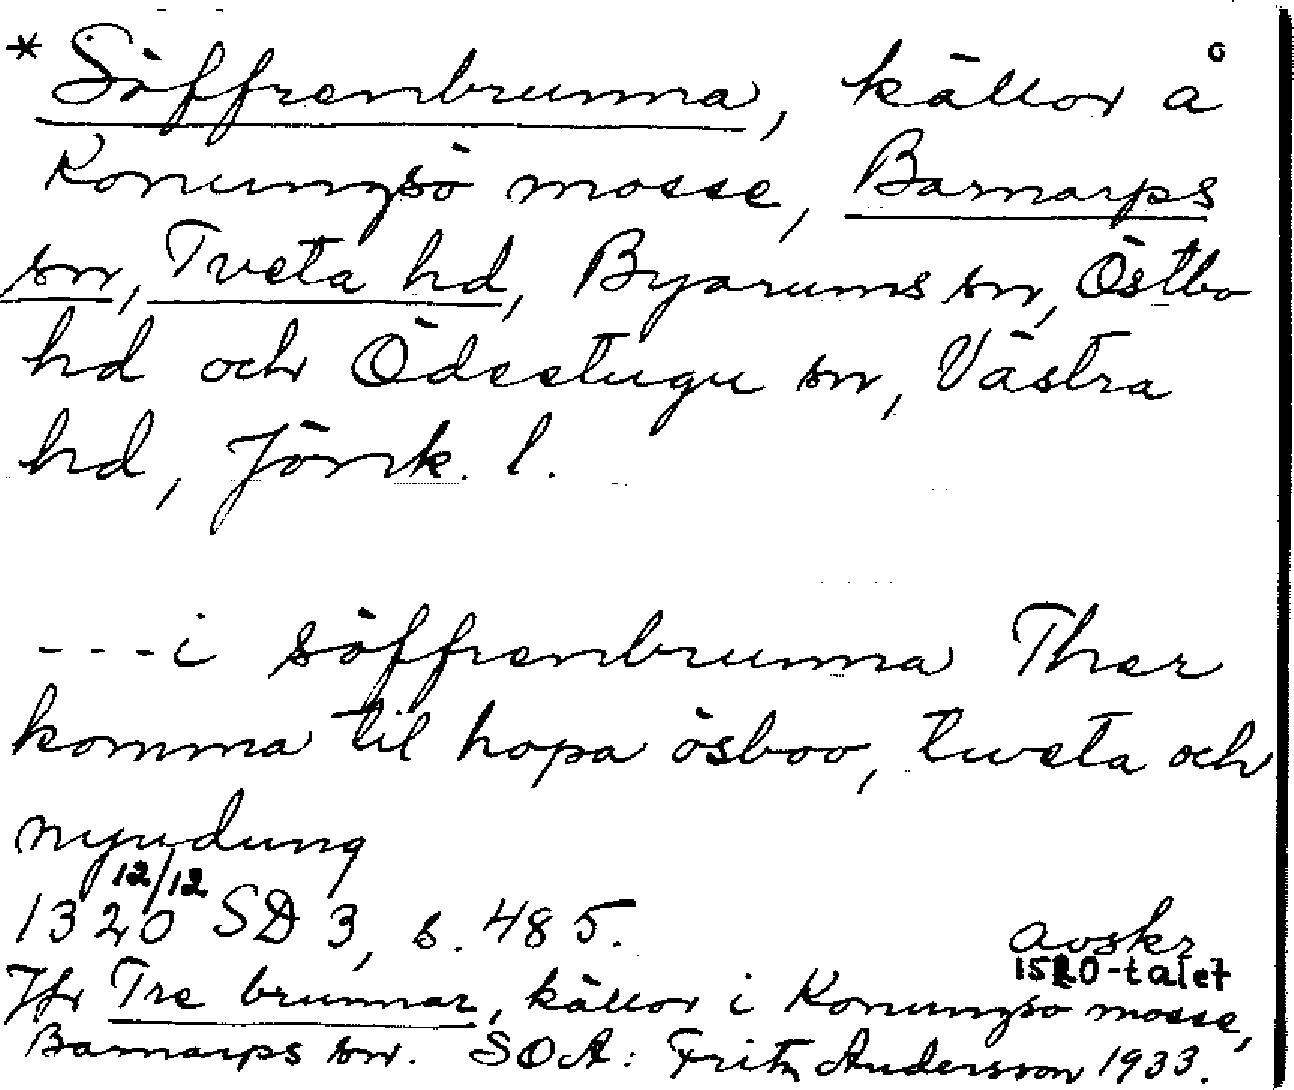 * Söffrenbrunna, källor å
Konungsö mosse, Barnarps
sn, Tveta hd, Byarums sn, Östbo
hd och Ödestugu sn, Västra
hd, Jönk. l.
---i söffrenbrunna Ther
komma til hopa ösboo, tweta och
nyudung
12/12
1320 SD 3, s. 485.
avskr
1520-talet
Jfr Tre brunnar, källor i Konungsö mosse,
Barnarps sn. SOA: Fritz Andersson 1933.